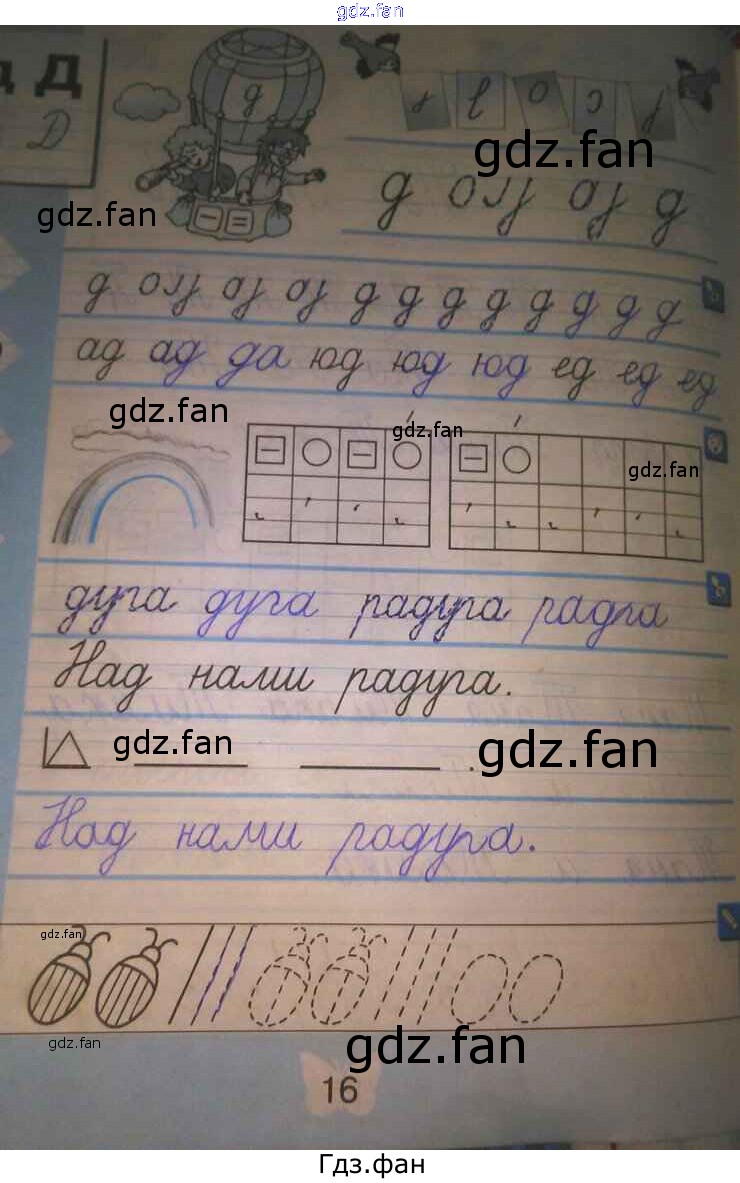 gdz.fan
д Д
Д
д
gdz.fan
gdz.fan
д
д д д д д д д д д
ад ад да юд юд юд ед ед ед
gdz.fan
gdz.fan
gdz.fan
дуга дуга радуга радга
Над нами радуга.
gdz.fan
gdz.fan
Над нами радуга.
gdz.fan
gdz.fan
gdz.fan
16
Гдз.фан